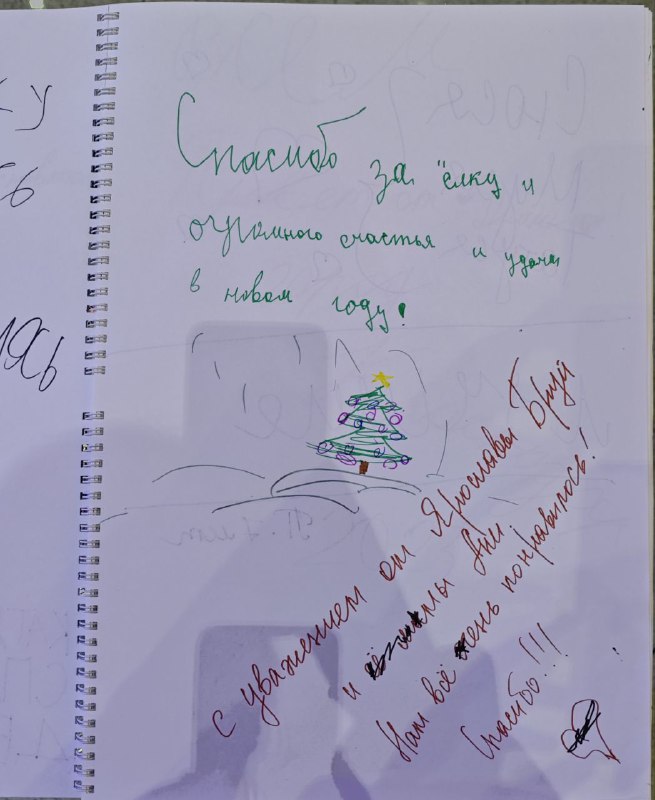 Спасибо за ёлку и
огромного счастья и удачи
в новом году!
с уважением от Ярославы Бруй
и мамы Ани
Нам всё очень понравилось!
Спасибо!!!